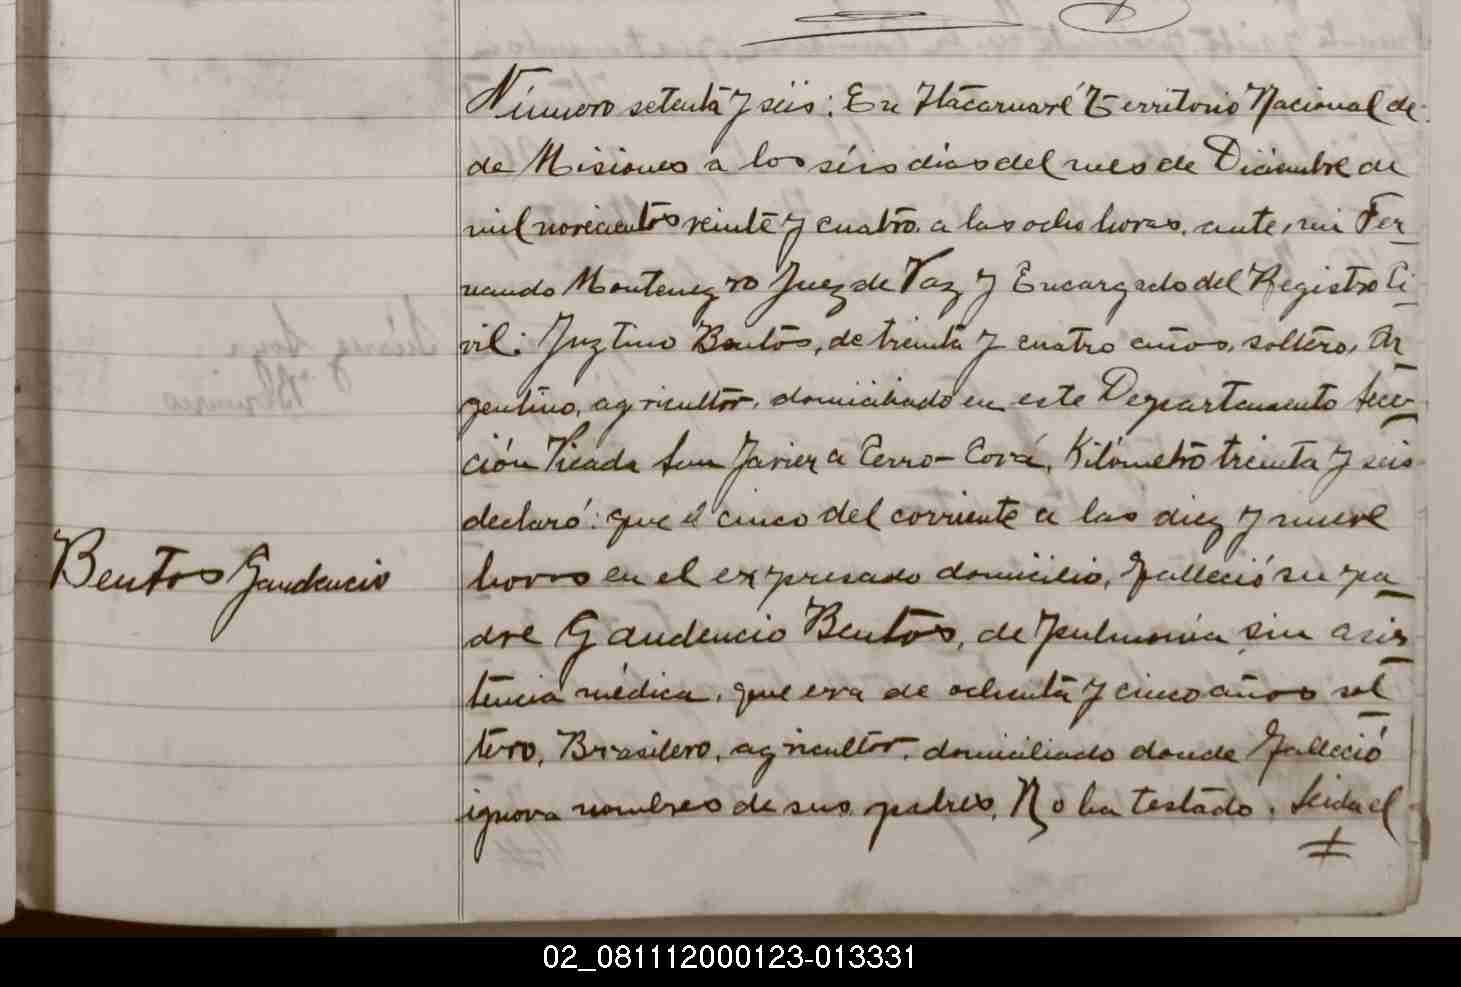 Número setenta y séis: En Itacaruaré Territorio Nacional de
de Misiones a los séis dias del mes de Diciembre de
mil novecientos veinte y cuatro, a las ocho horas, ante, mi Fer_
nando Montenegro Juez de Paz y Encargado del Registro Ci_
vil: Juztino Bentos, de treinta y cuatro años, soltero, Ar_
gentino, agricultor, domiciliado en este Departamento Sec_
ción Picada San Javier a Cerro-Corá, Kilómetro treinta y seis
declaró: que el cinco del corriente a las diez y nueve
Bentos Gaudencio
horas en el expresado domicilio, falleció su pa_
dre Gaudencio Bentos, de pulmonía sin asis_
tencia médica, que era de ochenta y cinco años sol_
tero, Brasilero, agricultor, domiciliado donde falleció
ignora nombres de sus padres, No ha testado. Leida el
02_081112000123-013331